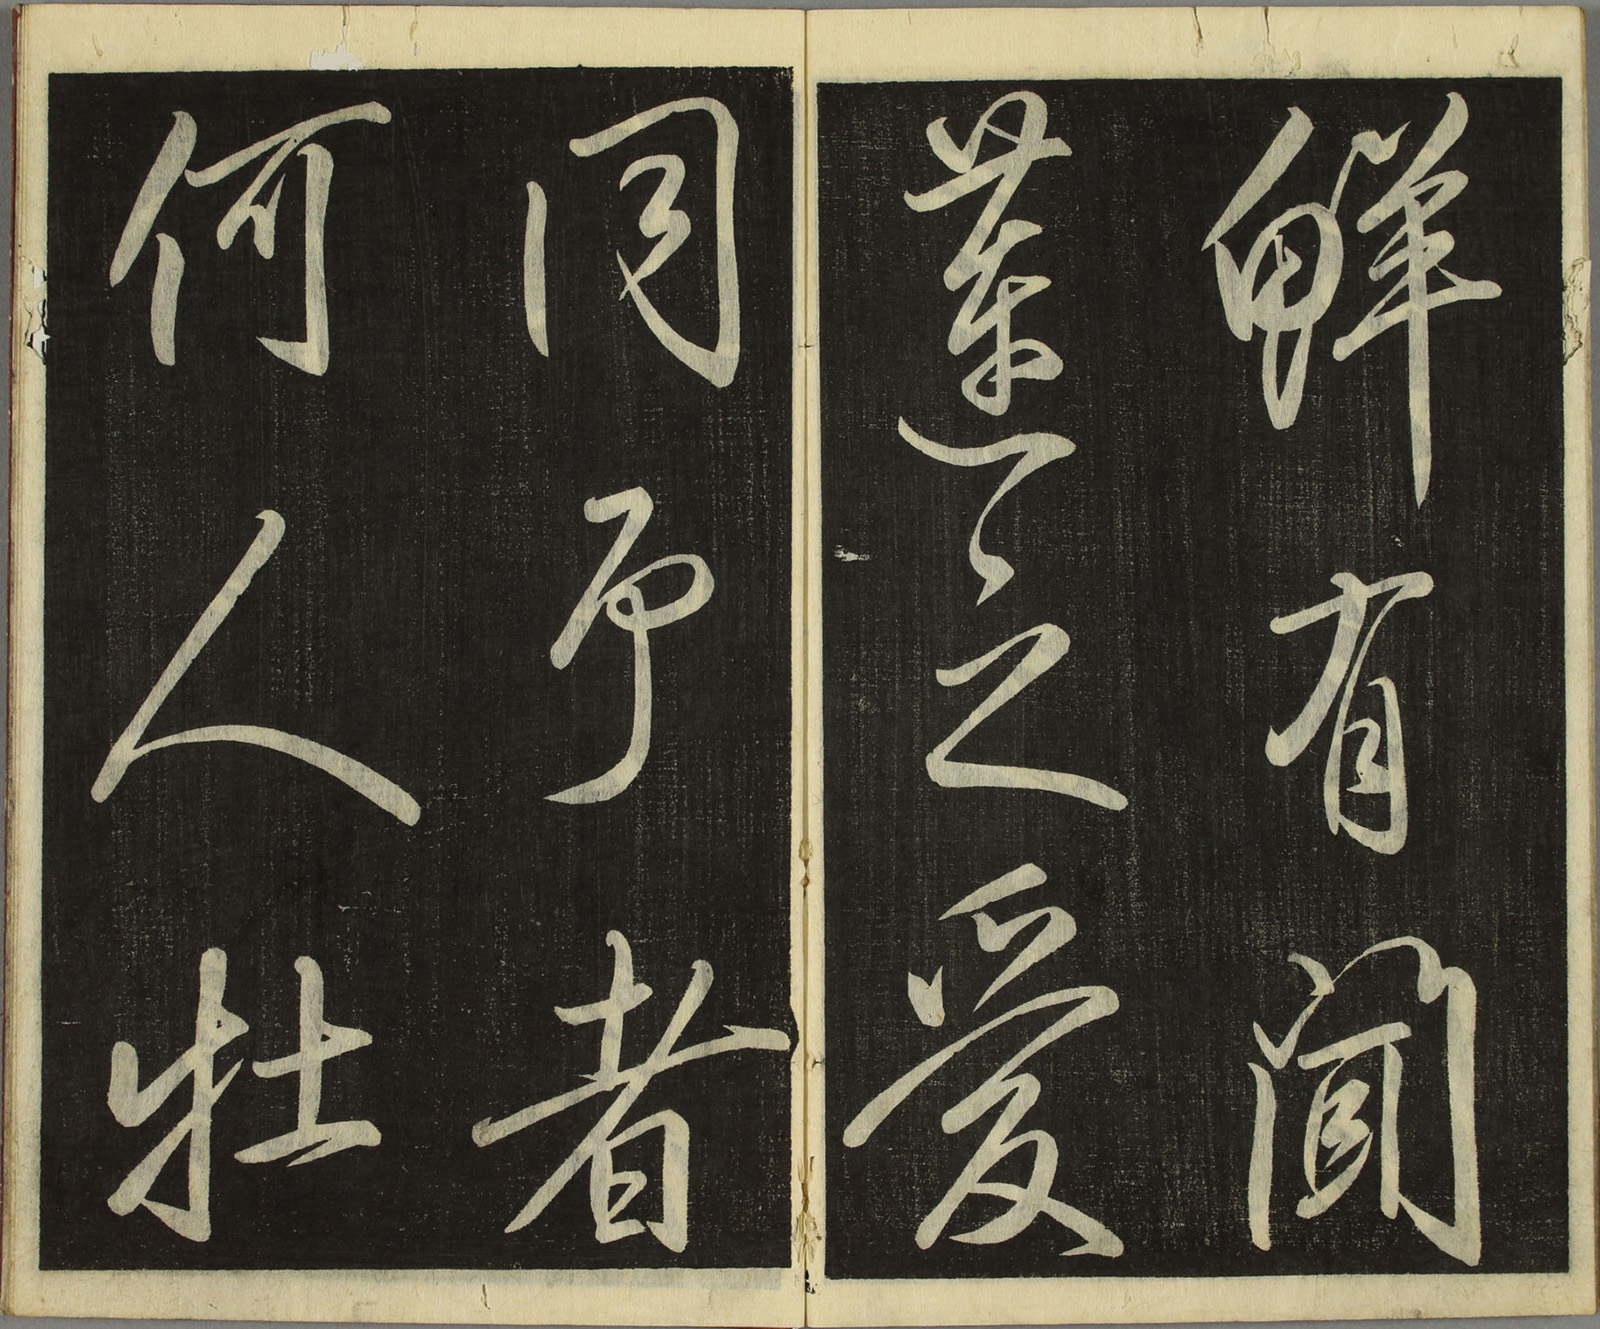 鮮有聞
蓮之愛
同予者
何人牡